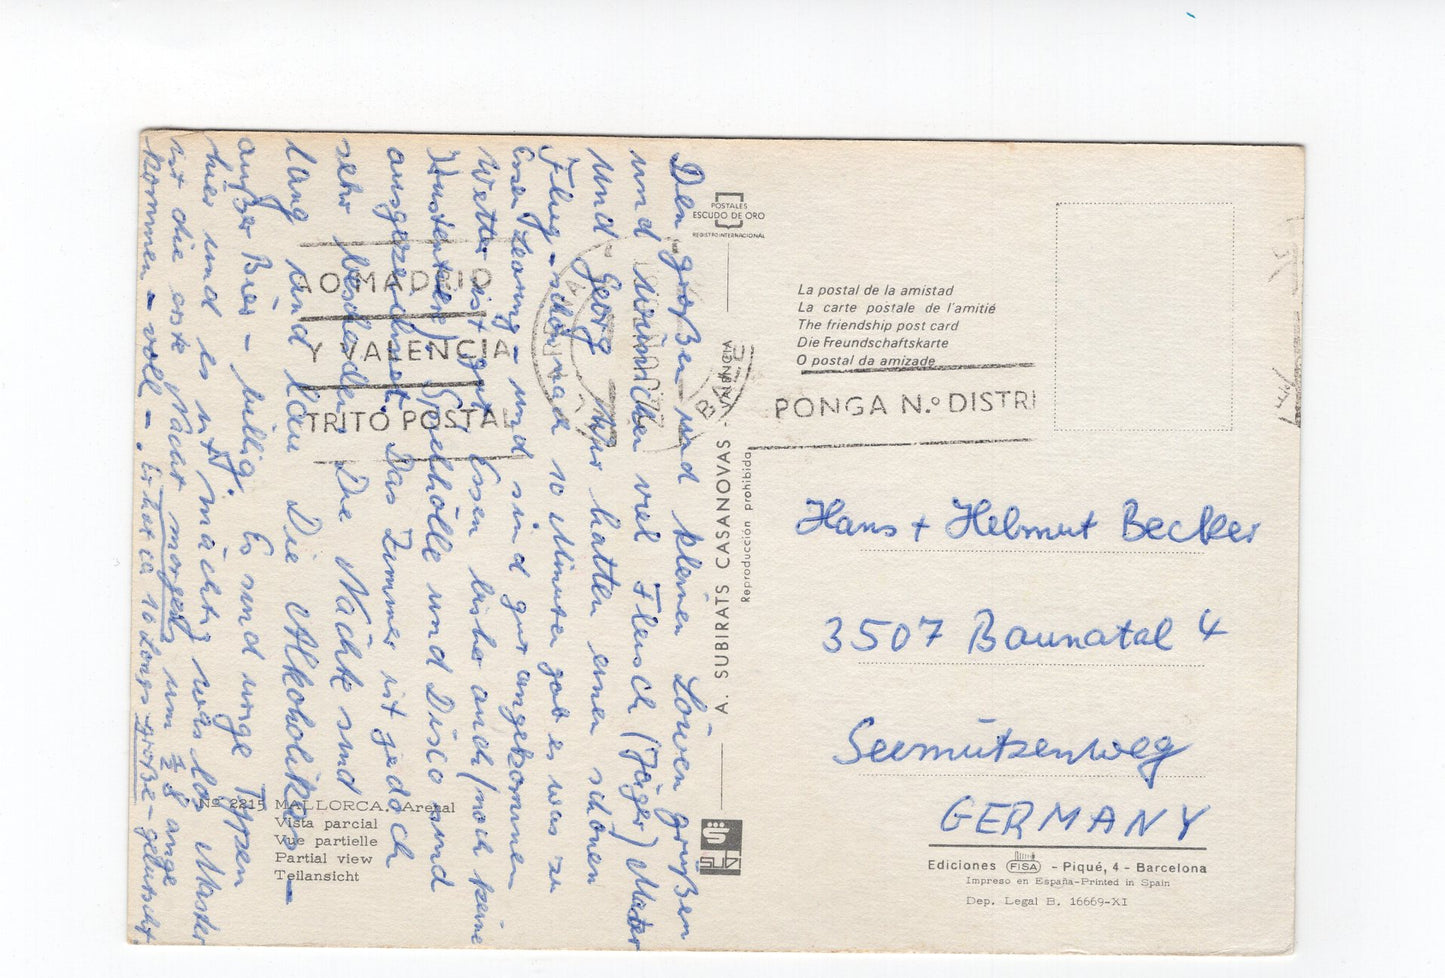 Den großen und kleinen Löwen grüßen
und wünschen viel Fleisch (Jäger) Mater
und Georg. Wir hatten einen schönen
Flug - schon nach 10 Minuten gab es was zu
Essen und sind gut angekommen
Wetter ist gut, Essen bisher auch (noch keine
Spielhölle und Disco sind
ausgezeichnet. Das Zimmer ist jedoch
sehr bescheiden. Die Nächte sind
lang und lau. Die Alkoholiker -
außer Bier - billig. Es sind Typen
hier und es ist mächtig was los. Master
ist die erste Nacht morgens um ½ 8 ange
kommen - voll -. Er hat ca 10 Longs große - gelutscht
POSTALES
ESCUDO DE ORO
REGISTRO INTERNACIONAL
A. SUBIRATS CASANOVAS - VALENCIA
Reproducción prohibida
SUBI
AO MADRID
Y VALENCIA
TRITO POSTAL
PONGA N.º DISTRI
La postal de la amistad
La carte postale de l'amitié
The friendship post card
Die Freundschaftskarte
O postal da amizade
Hans + Helmut Becker
3507 Baunatal 4
Seemützenweg
GERMANY
Ediciones FISA - Piqué, 4 - Barcelona
Impreso en España-Printed in Spain
Dep. Legal B. 16669-XI
Nº 2215 MALLORCA. Arenal
Vista parcial
Vue partielle
Partial view
Teilansicht